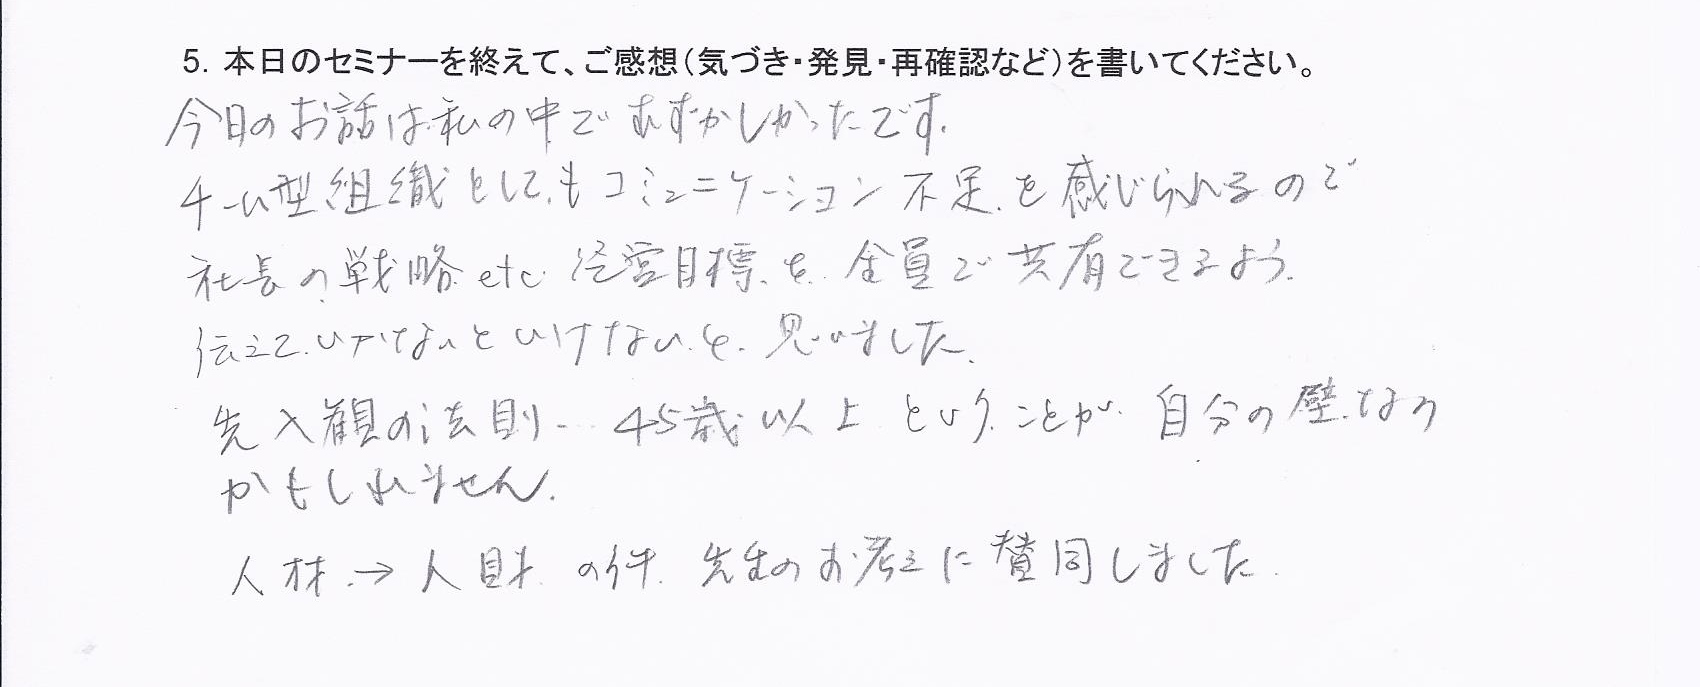 5. 本日のセミナーを終えて、ご感想(気づき・発見・再確認など)を書いてください。
今日のお話は私の中でむずかしかったです.
チーム型組織としてもコミュニケーション不足を感じられるので
社長の戦略 etc 経営目標を全員で共有できるよう.
伝えていかないといけないと思いました.
先入観の法則… 45歳以上ということが自分の壁なの
かもしれません.
人材→人財の件 先生のお考えに賛同しました.